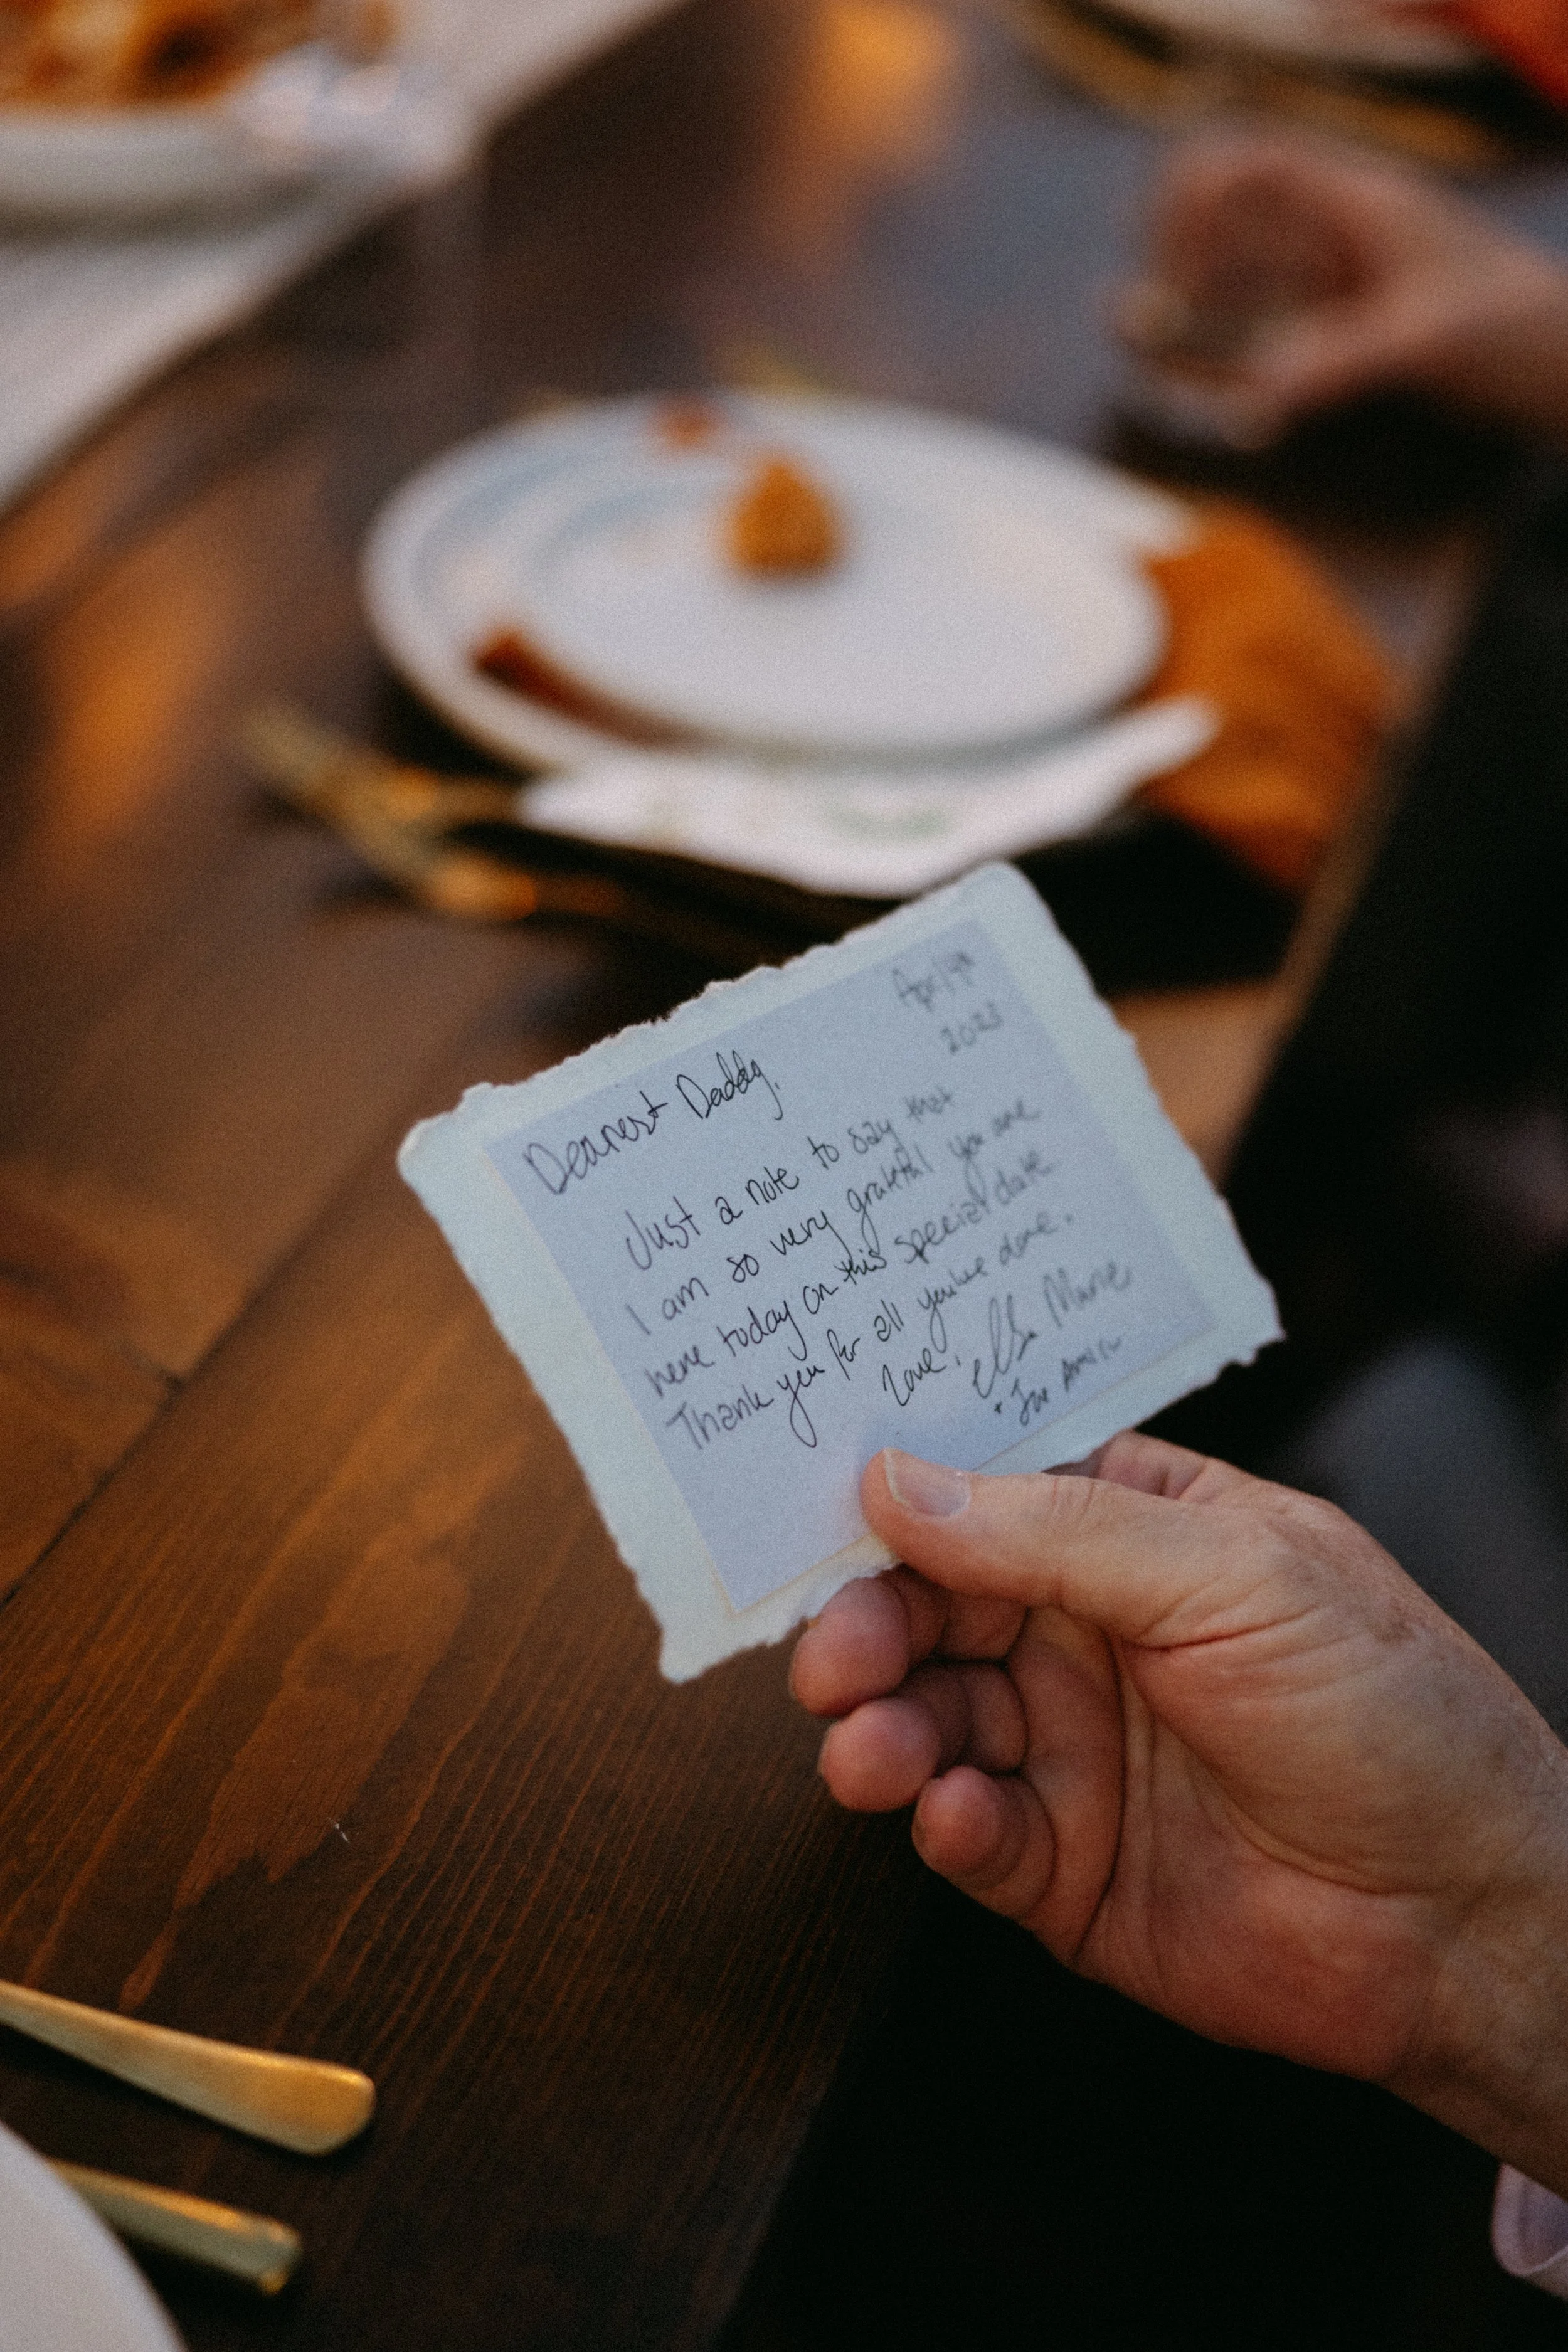 April 4th
2023
Dearest Daddy,
Just a note to say that
I am so very grateful you are
here today on this special date
Thank you for all you've done.
Love, Marie
+ Joe